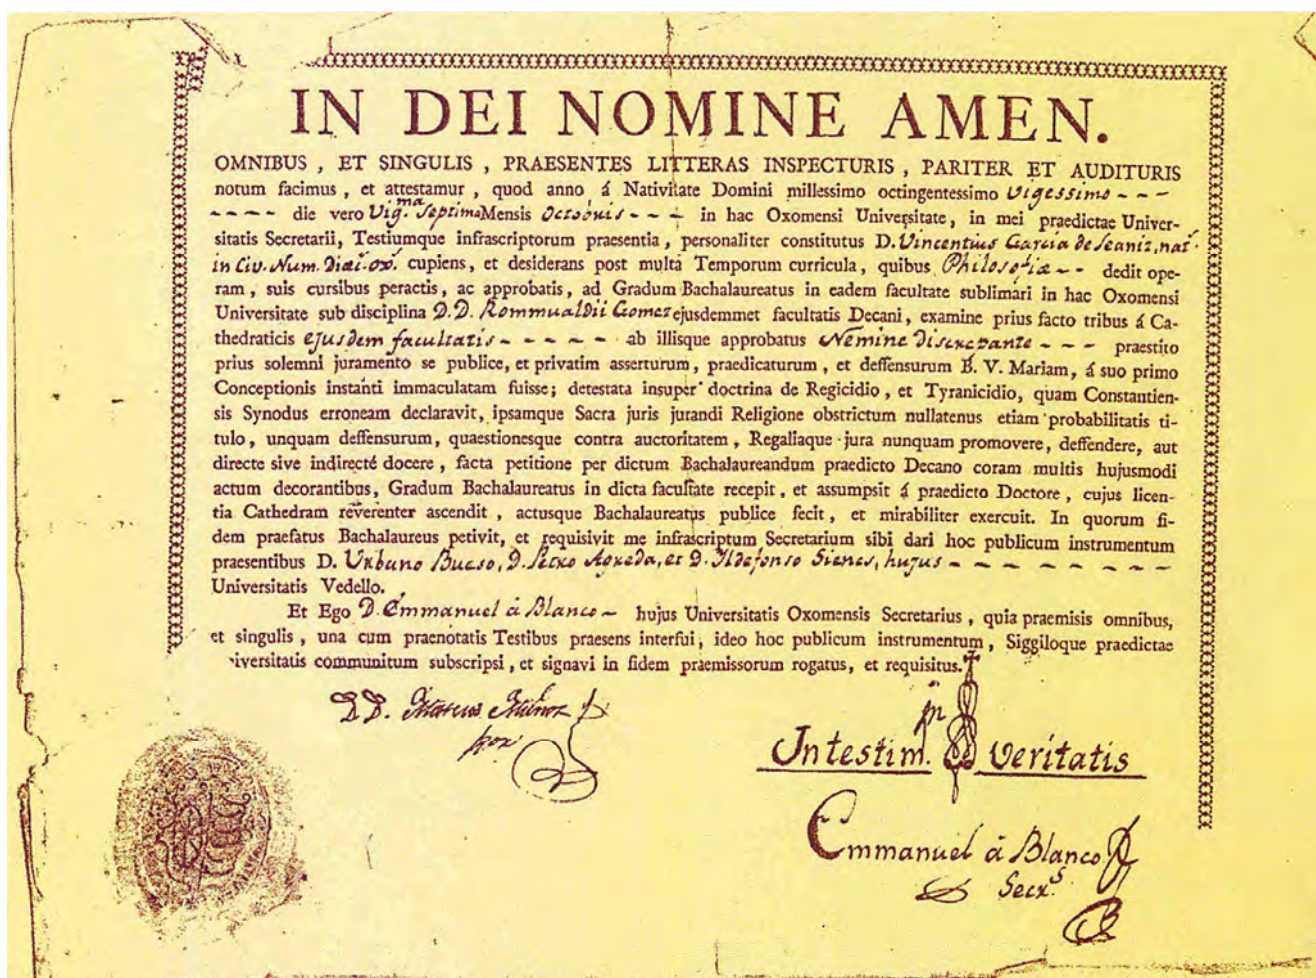 IN DEI NOMINE AMEN.
OMNIBUS, ET SINGULIS, PRAESENTES LITTERAS INSPECTURIS, PARITER ET AUDITURIS
notum facimus, et attestamur, quod anno á Nativitate Domini millessimo octingentessimo Vigessimo - - -
- - - - die vero Vig.ma Septima Mensis Octobris - - - in hac Oxomensi Universitate, in mei praedictae Univer-
sitatis Secretarii, Testiumque infrascriptorum praesentia, personaliter constitutus D. Vincentius Garcia de Leaniz, nat.
in Civ. Num. Diæi. ox. cupiens, et desiderans post multa Temporum curricula, quibus Philosofiæ - - dedit ope-
ram, suis cursibus peractis, ac approbatis, ad Gradum Bachalaureatus in eadem facultate sublimari in hac Oxomensi
Universitate sub disciplina D.D. Rommualdii Gomez ejusdemmet facultatis Decani, examine prius facto tribus á Ca-
thedraticis ejusdem facultatis - - - - - ab illisque approbatus Nemine discrepante - - - praestito
prius solemni juramento se publice, et privatim asserturum, praedicaturum, et deffensurum B. V. Mariam, á suo primo
Conceptionis instanti immaculatam fuisse; detestata insuper doctrina de Regicidio, et Tyranicidio, quam Constantien-
sis Synodus erroneam declaravit, ipsamque Sacra juris jurandi Religione obstrictum nullatenus etiam probabilitatis ti-
tulo, unquam deffensurum, quaestionesque contra auctoritatem, Regaliaque jura nunquam promovere, deffendere, aut
directe sive indirecté docere, facta petitione per dictum Bachalaureandum praedicto Decano coram multis hujusmodi
actum decorantibus, Gradum Bachalaureatus in dicta facultate recepit, et assumpsit á praedicto Doctore, cujus licen-
tia Cathedram reverenter ascendit, actusque Bachalaureatus publice fecit, et mirabiliter exercuit. In quorum fi-
dem praefatus Bachalaureus petivit, et requisivit me infrascriptum Secretarium sibi dari hoc publicum instrumentum
praesentibus D. Urbano Bueso, D. Petro Agreda, et D. Ildefonso Sienes, hujus - - - - - - - - -
Universitatis Vedello.
Et Ego D. Emmanuel à Blanco - hujus Universitatis Oxomensis Secretarius, quia praemisis omnibus,
et singulis, una cum praenotatis Testibus praesens interfui, ideo hoc publicum instrumentum, Siggiloque praedictae
iversitatis communitum subscripsi, et signavi in fidem praemissorum rogatus, et requisitus.
DD. Mateus Muñoz
In testim. veritatis
Emmanuel à Blanco
Secr.s